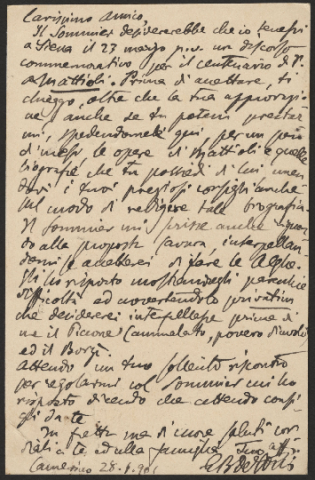 Carissimo amico,
Il Sommier desidererebbe che io tenessi
a Siena il 23 marzo p.v. un discorso
commemorativo per il centenario di P.
A. Mattioli. Prima di accettare, ti
chieggo, oltre che la tua approvazio-
ne anche se tu potessi prestar
mi, spedendomele qui, per un paio
di mesi, le opere di Mattioli e quelle
biografie che tu possiedi di lui unen
dovi i tuoi preziosi consigli anche
sul modo di redigere tale biografia.
Il Sommier mi scrisse anche riguar
do alla proposta interpellan
domi se accetterei di fare le Alghe.
Gli ho risposto mostrandogli parecchie
difficoltà ed avvertendolo
che desidererei interpellare prima di
me il Piccone ammalato, povero diavolo
ed il Borzì.
Attendo un tuo sollecito riscontro
per regolarmi col Sommier cui ho
risposto dicendo che attendo consi
gli da te.
In fretta ma di cuore saluti cor
diali a te ed alla famiglia. Tuo aff.
Camerino 28.1.901 GB de Toni